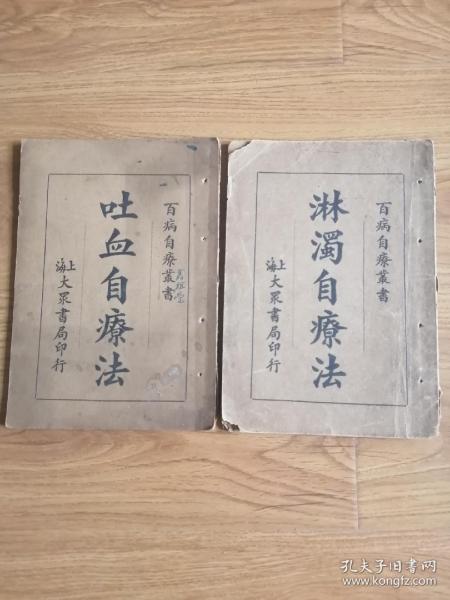 百病自療叢書
吐血自療法
上海大眾書局印行
百病自療叢書
淋濁自療法
上海大眾書局印行
孔夫子旧书网
www.kongfz.com